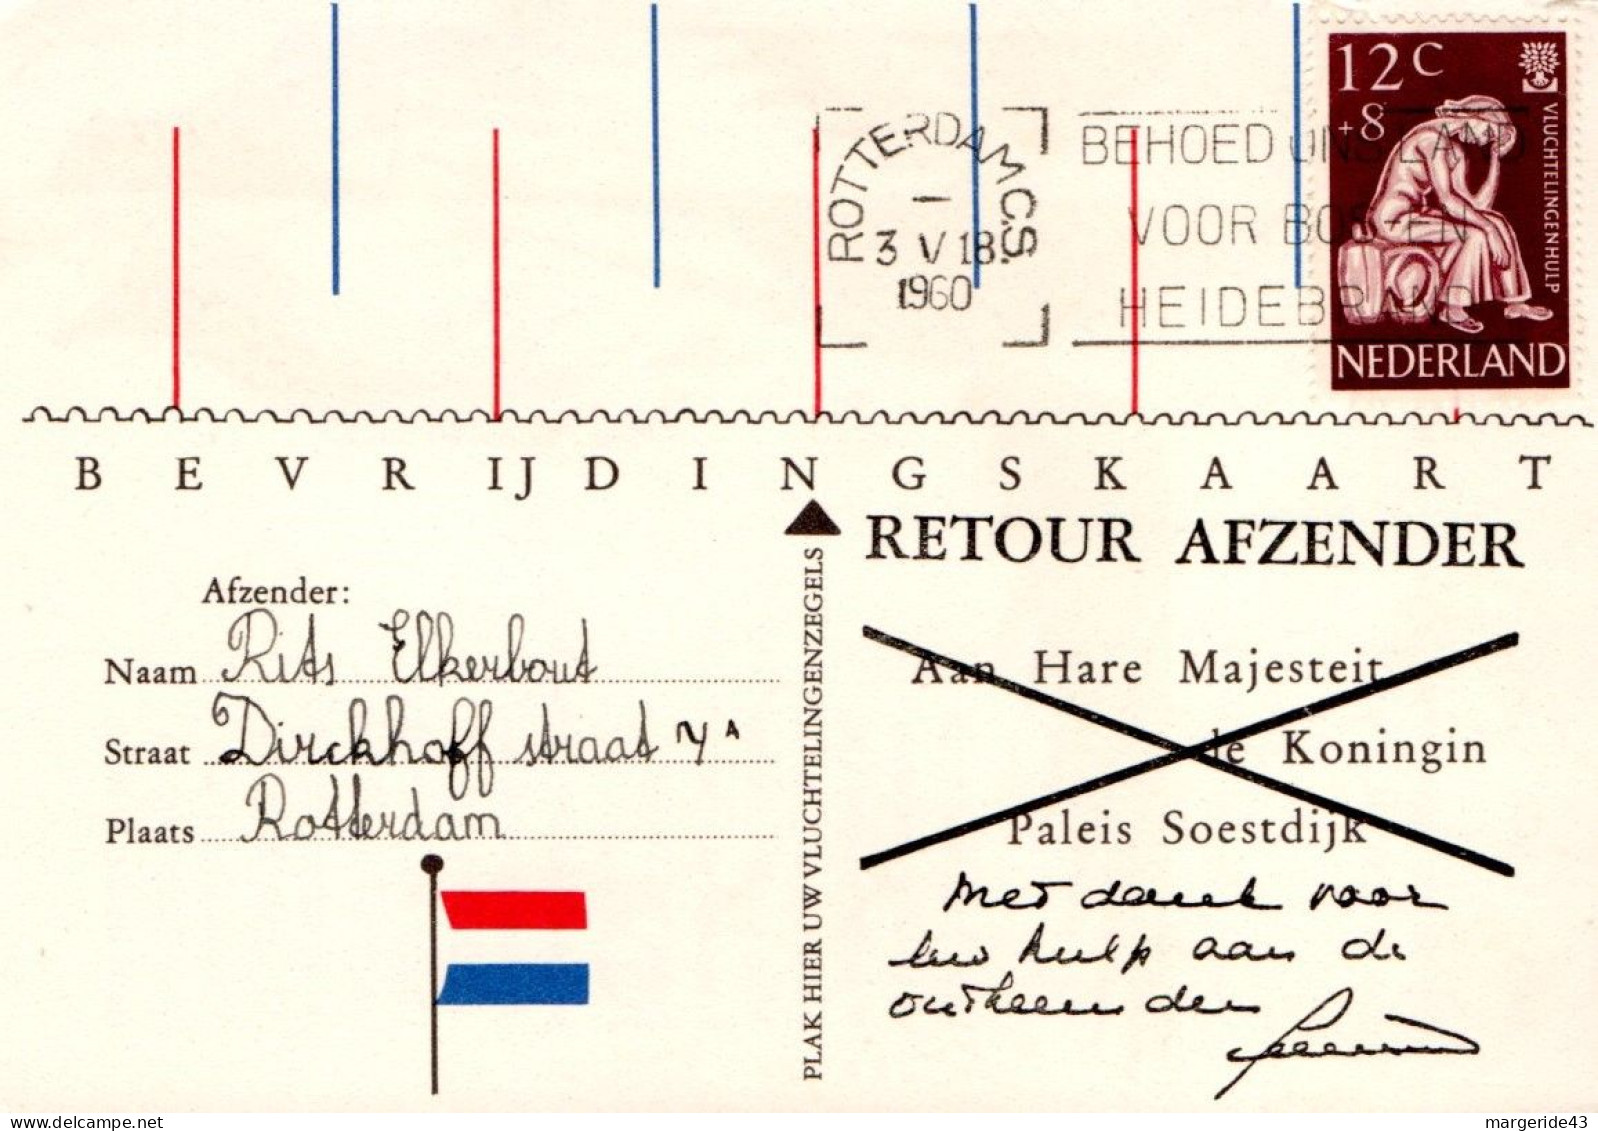 12 C
+8
VLUCHTELINGENHULP
NEDERLAND
ROTTERDAM C.S.
3 V 18
1960
BEHOED ONS LAND
VOOR BOS-EN
HEIDEBRAND
BEVRIJDINGSKAART
RETOUR AFZENDER
Afzender:
Naam Rits Elkerbout
Straat Dirckhoff straat
Plaats Rotterdam
PLAK HIER UW VLUCHTELINGENZEGELS
Aan Hare Majesteit
de Koningin
Paleis Soestdijk
Met dank voor
uw hulp aan de
ontheemden
margeride43